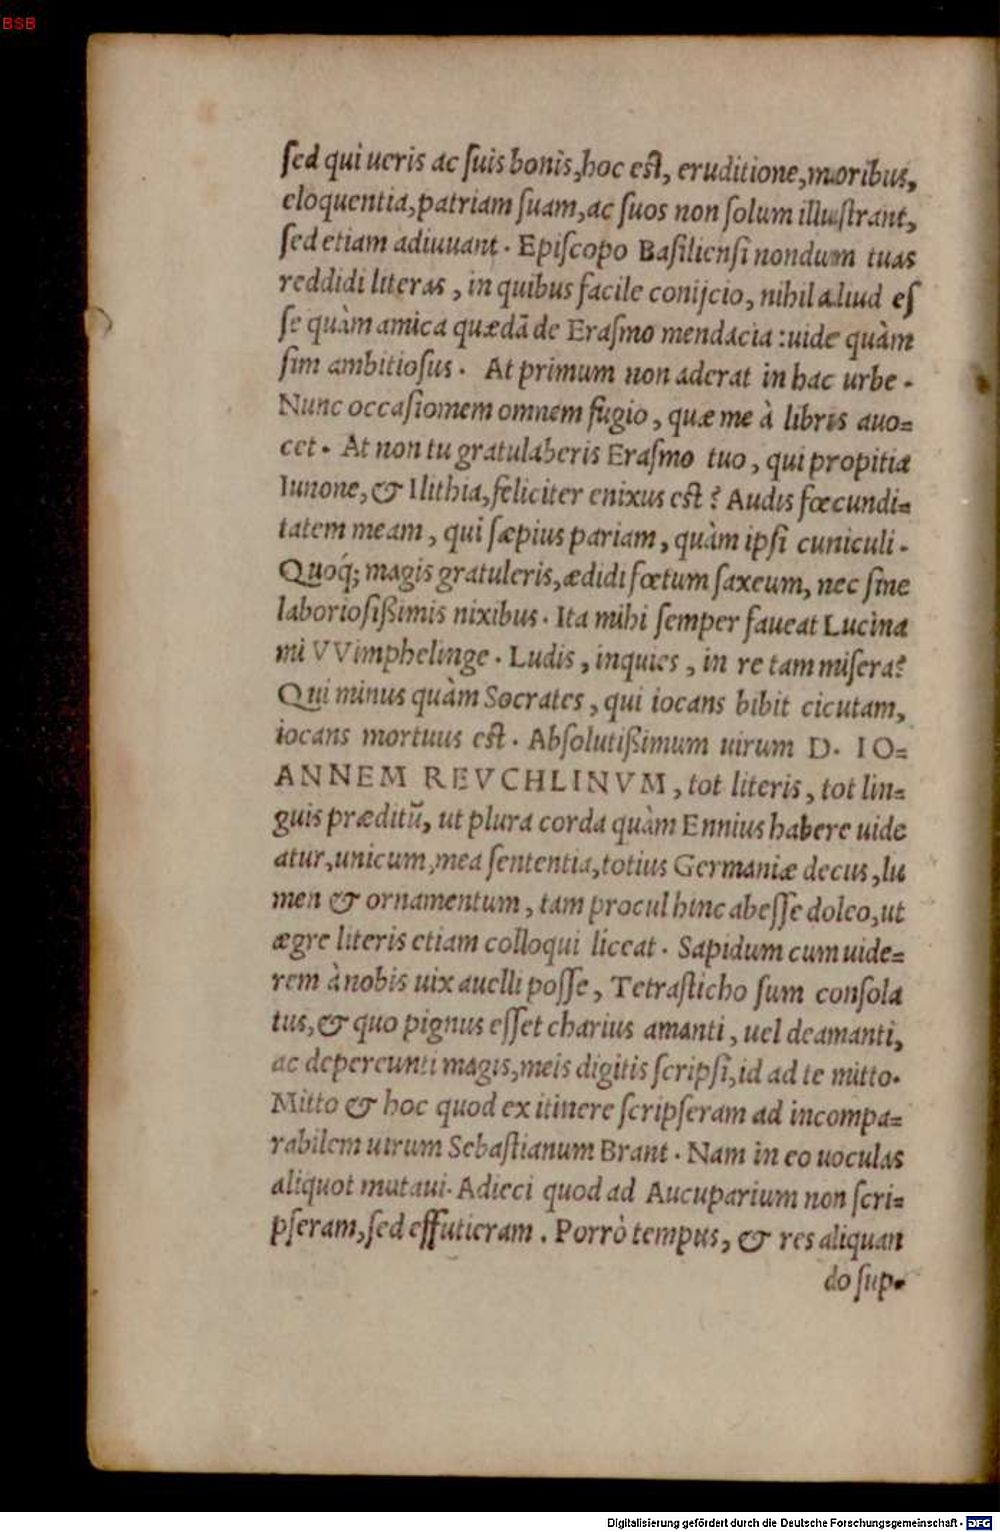 BSB
ſed qui ueris ac ſuis bonis, hoc eſt, eruditione, moribus,
eloquentia, patriam ſuam, ac ſuos non ſolum illuſtrant,
ſed etiam adiuuant. Epiſcopo Baſilienſi nondum tuas
reddidi literas, in quibus facile conijcio, nihil aliud eſ
ſe quàm amica quædā de Eraſmo mendacia: uide quàm
ſim ambitioſus. At primum non aderat in hac urbe.
Nunc occaſiomem omnem fugio, quæ me à libris auo=
cet. At non tu gratulaberis Eraſmo tuo, qui propitia
Iunone, & Ilithia, feliciter enixus eſt? Audis fœcundi=
tatem meam, qui ſæpius pariam, quàm ipſi cuniculi.
Quoq́; magis gratuleris, ædidi fœtum ſaxeum, nec ſine
laborioſißimis nixibus. Ita mihi ſemper faueat Lucina
mi VVimphelinge. Ludis, inquies, in re tam miſera?
Qui minus quàm Socrates, qui iocans bibit cicutam,
iocans mortuus eſt. Abſolutißimum uirum D. IO=
ANNEM REVCHLINVM, tot literis, tot lin=
guis præditū, ut plura corda quàm Ennius habere uide
atur, unicum, mea ſententia, totius Germaniæ decus, lu
men & ornamentum, tam procul hinc abeſſe doleo, ut
ægre literis etiam colloqui liceat. Sapidum cum uide=
rem à nobis uix auelli poſſe, Tetraſticho ſum conſola
tus, & quo pignus eſſet charius amanti, uel deamanti,
ac depereunti magis, meis digitis ſcripſi, id ad te mitto.
Mitto & hoc quod ex itinere ſcripſeram ad incompa=
rabilem uirum Sebaſtianum Brant. Nam in eo uoculas
aliquot mutaui. Adieci quod ad Aucuparium non ſcri=
pſeram, ſed effutieram. Porrò tempus, & res aliquan
do ſup=
Digitalisierung gefördert durch die Deutsche Forschungsgemeinschaft - DFG